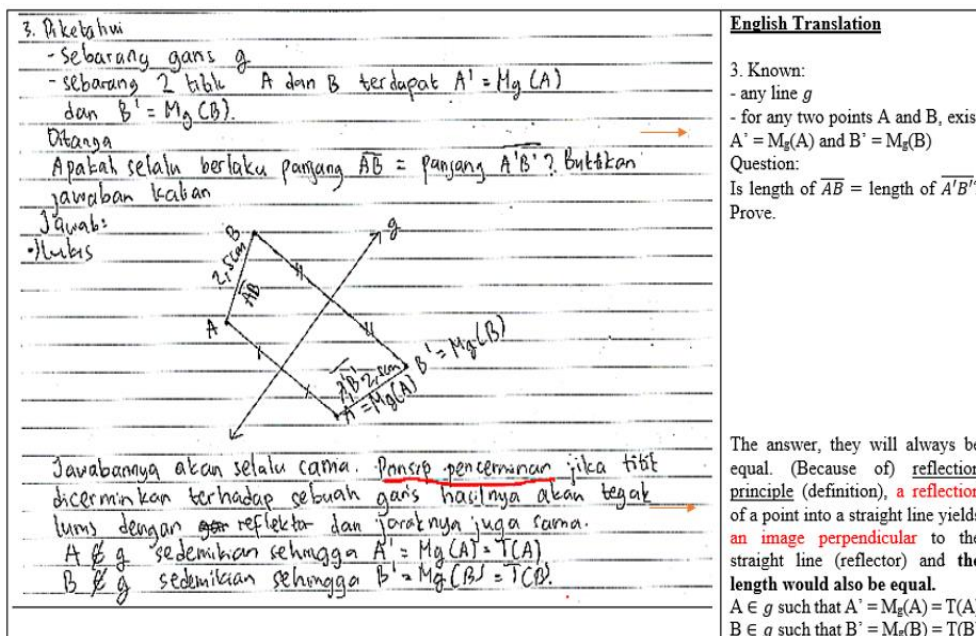 3. Diketahui
- Sebarang garis g
- sebarang 2 titik A dan B terdapat A' = Mg (A)
dan B' = Mg (B).
Ditanya
Apakah selalu berlaku panjang AB = panjang A'B'? Buktikan
jawaban kalian
Jawab:
• Ilustrasi
B
g
2,5cm
AB
A
B' = Mg(B)
A'B' 2,5cm
A' = Mg(A)
Jawabannya akan selalu cama. Prinsip pencerminan jika titik
dicerminkan terhadap sebuah garis hasilnya akan tegak
lurus dengan reflektor dan jaraknya juga sama.
A ∉ g sedemikian sehingga A' = Mg (A) = T(A)
B ∉ g sedemikian sehingga B' = Mg (B) = T(B).
English Translation
3. Known:
- any line g
- for any two points A and B, exis
A' = Mg(A) and B' = Mg(B)
Question:
Is length of AB = length of A'B'?
Prove.
The answer, they will always be
equal. (Because of) reflection
principle (definition), a reflection
of a point into a straight line yields
an image perpendicular to the
straight line (reflector) and the
length would also be equal.
A ∈ g such that A' = Mg(A) = T(A)
B ∈ g such that B' = Mg(B) = T(B)